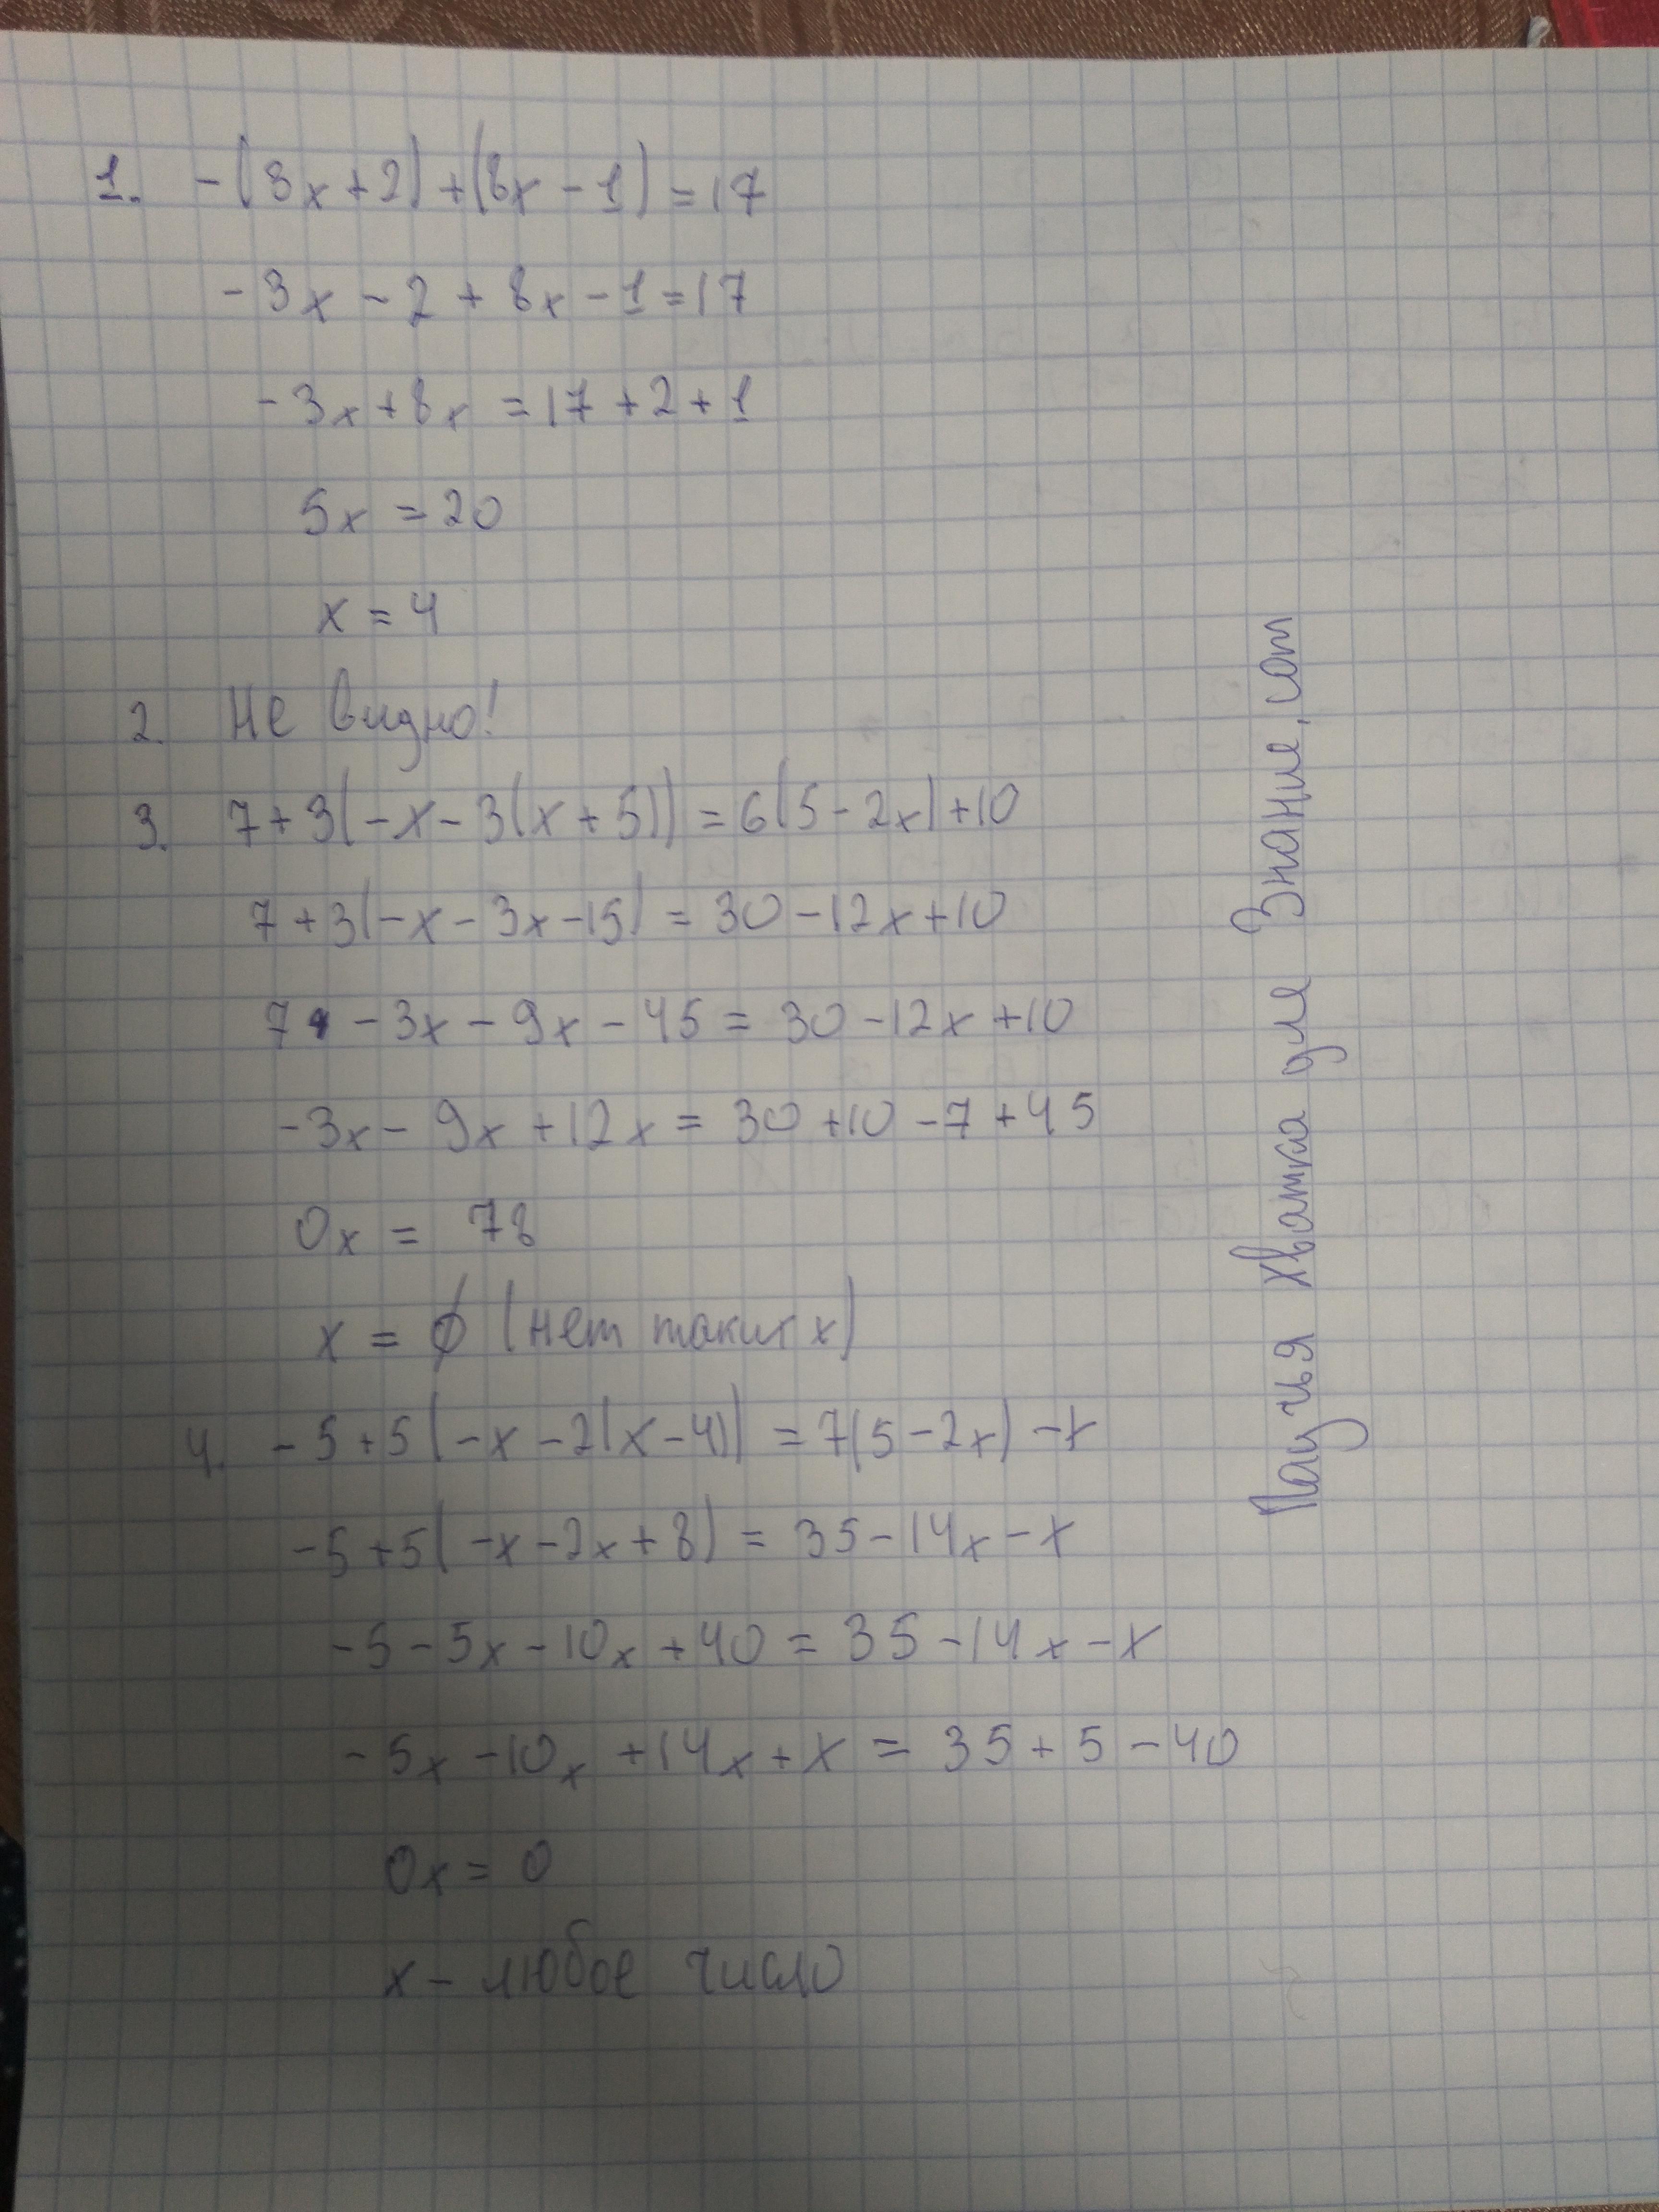 1. -(3x+2)+(8x-1)=17
-3x-2+8x-1=17
-3x+8x=17+2+1
5x=20
x=4
2. Не видно!
3. 7+3(-x-3(x+5))=6(5-2x)+10
7+3(-x-3x-15)=30-12x+10
7-3x-9x-45=30-12x+10
-3x-9x+12x=30+10-7+45
0x=78
x=∅ (нет таких x)
4. -5+5(-x-2(x-4))=7(5-2x)-x
-5+5(-x-2x+8)=35-14x-x
-5-5x-10x+40=35-14x-x
-5x-10x+14x+x=35+5-40
0x=0
x-любое число
Паучья хватка для Знание.com